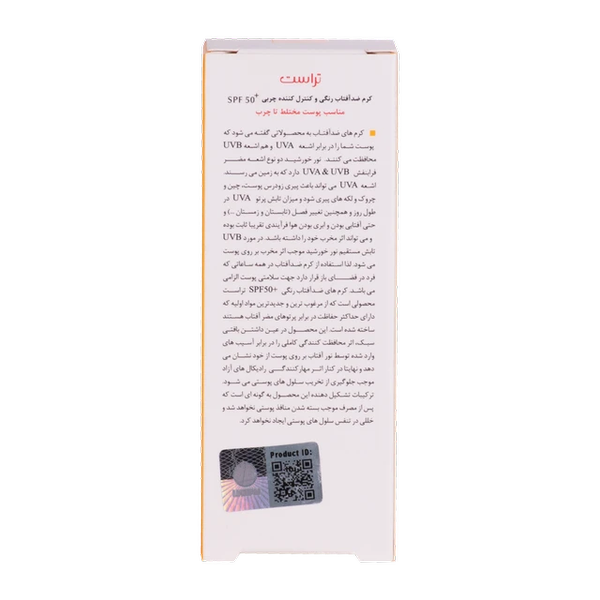 تراست
کرم ضدآفتاب رنگی و کنترل کننده چربی SPF 50+
مناسب پوست مختلط تا چرب
کرم های ضدآفتاب به محصولاتی گفته می شود که
پوست شما را در برابر اشعه UVA و هم اشعه UVB
محافظت می کنند. نور خورشید دو نوع اشعه مضر
فرابنفش UVA & UVB دارد که به زمین می رسند.
اشعه UVA می تواند باعث پیری زودرس پوست، چین و
چروک و لکه های پیری شود و میزان تابش پرتو UVA در
طول روز و همچنین تغییر فصل (تابستان و زمستان ...) و
حتی آفتابی بودن و ابری بودن هوا فرآیندی تقریبا ثابت بوده
و می تواند اثر مخرب خود را داشته باشد. در مورد UVB
تابش مستقیم نور خورشید موجب اثر مخرب بر روی پوست
می شود. لذا استفاده از کرم ضدآفتاب در همه ساعاتی که
فرد در فضای باز قرار دارد جهت سلامتی پوست الزامی
می باشد. کرم های ضدآفتاب رنگی SPF50+ تراست
محصولی است که از مرغوب ترین و جدیدترین مواد اولیه که
دارای حداکثر حفاظت در برابر پرتوهای مضر آفتاب هستند
ساخته شده است. این محصول در عین داشتن بافتی
سبک، اثر محافظت کنندگی کاملی را در برابر آسیب های
وارد شده توسط نور آفتاب بر روی پوست از خود نشان می
دهد و نهایتا در کنار اثر مهارکنندگی رادیکال های آزاد
موجب جلوگیری از تخریب سلول های پوستی می شود.
ترکیبات تشکیل دهنده این محصول به گونه ای است که
پس از مصرف موجب بسته شدن منافذ پوستی نخواهد شد و
خللی در تنفس سلول های پوستی ایجاد نخواهد کرد.
Product ID: